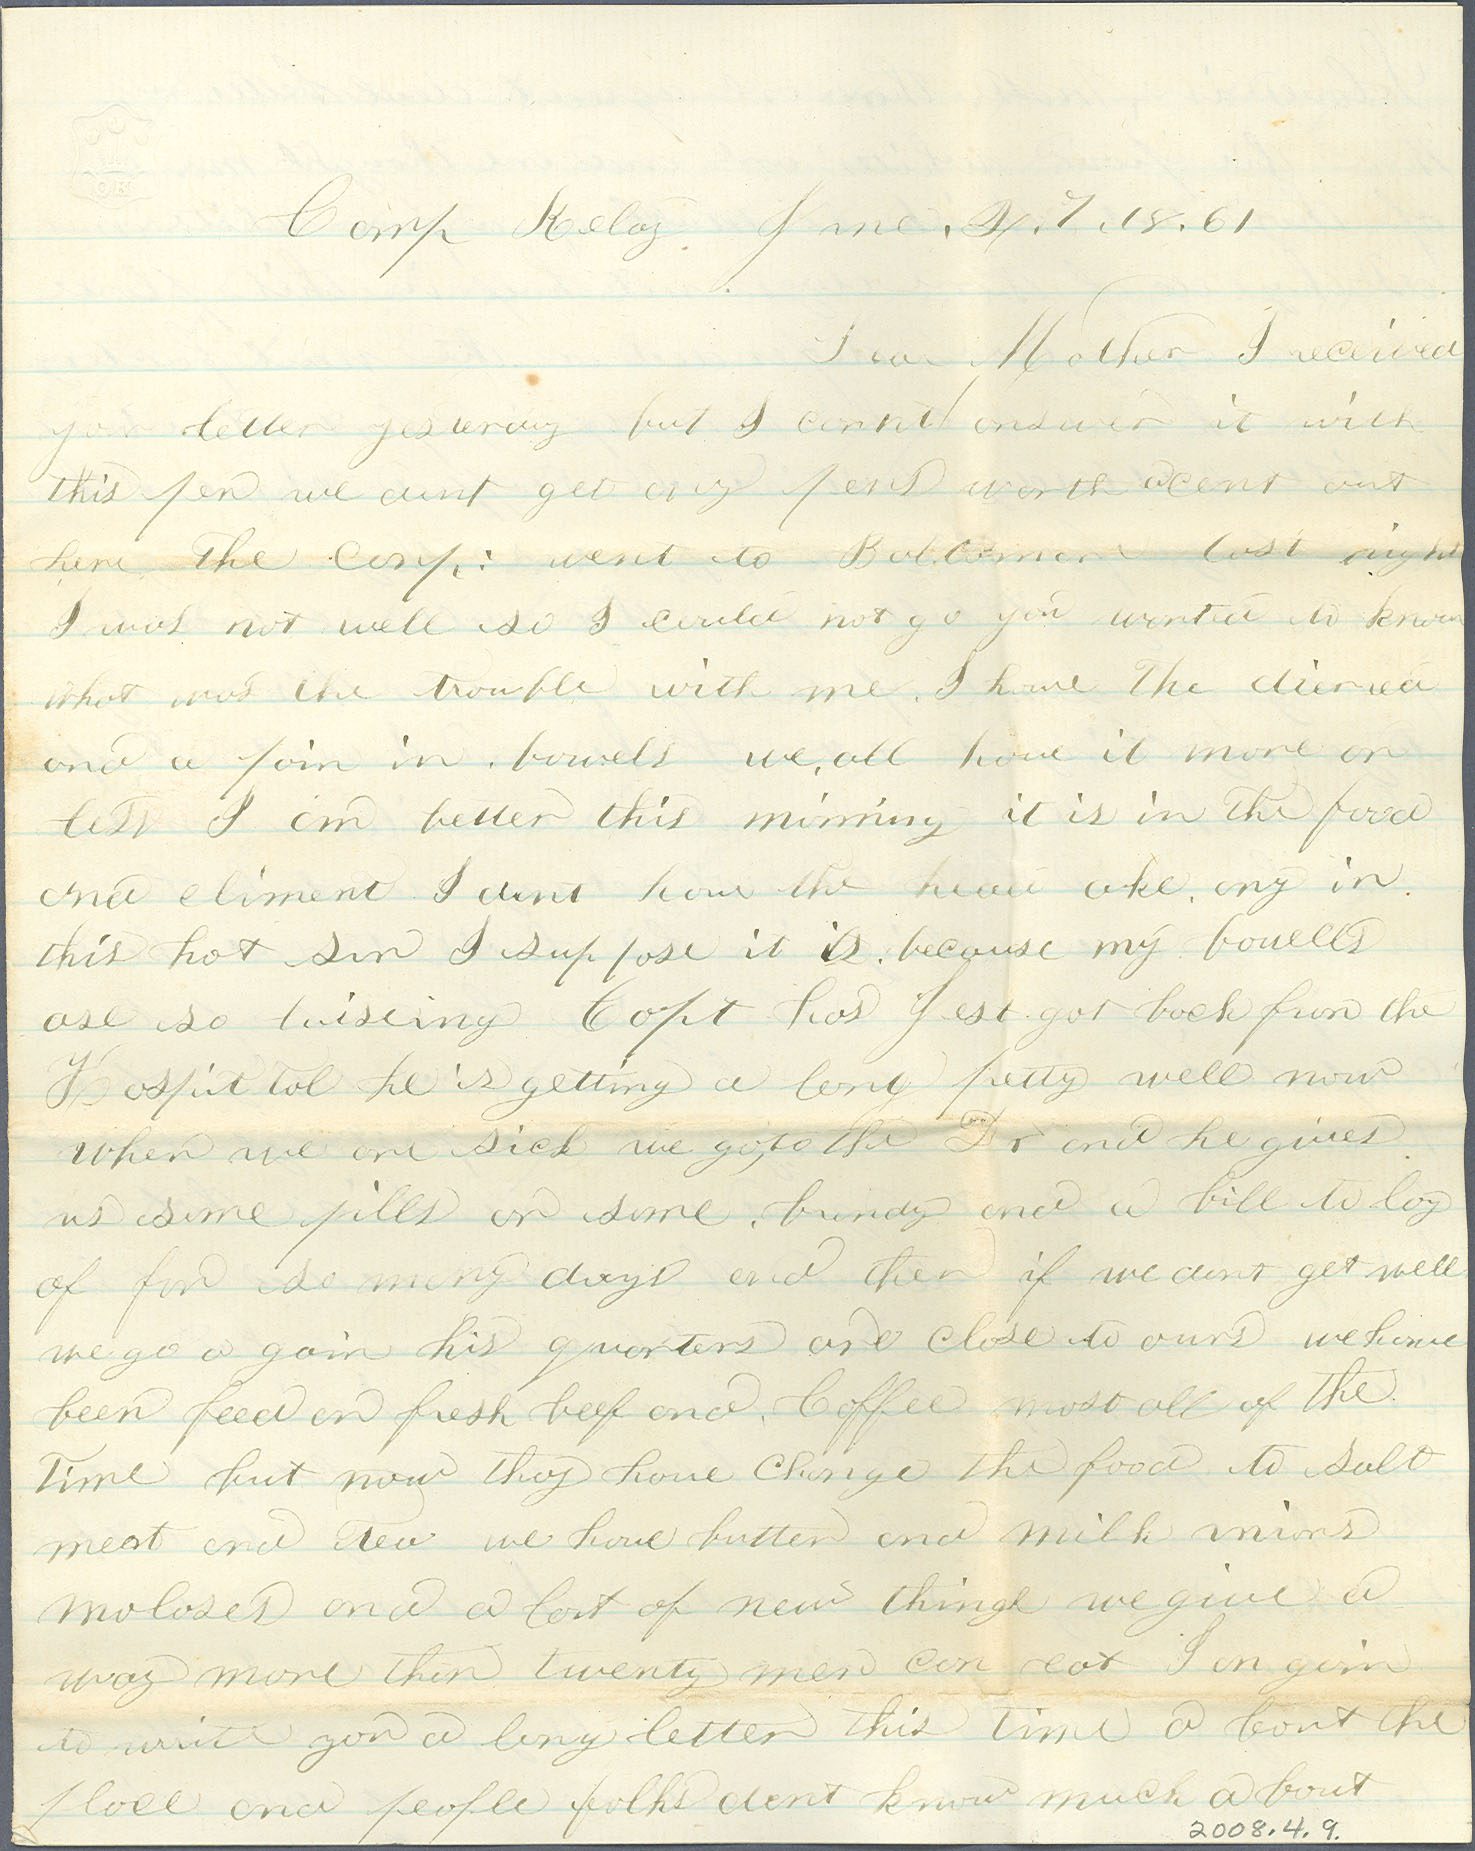 Camp Relay June. 27. 18.61
Dear Mother I received
your letter yesterday but I cannt answer it with
this pen we dont get any pens worth a cent out
here The Comp: went to Baltomore last night
I was not well so I could not go you wanted to know
what was the trouble with me. I have The diereea
and a pain in. bowels we, all have it more or
less I am better this morning it is in The food
and eliment I dont have the head ake. any in.
this hot sun I suppose it is. because my bouells
are so Capt has Jest got back from the
Hospittal he is getting a long pretty well now
when we are sick we go to the Dr and he gives
us some pills or some. brandy and a bill to lay
of for so many days and then if we dont get well
we go a gain his quarters are close to ours we have
been feed on fresh beef and. Coffee most all of the.
Time but now thay have change the food to salt
meat and Tea we have butter and milk inions
molases and a lort of new things we give a
way more then twenty men can eat I am goin
to write you a long letter this time a bout the
place and people folks dont know much a bout
2008.4.9.